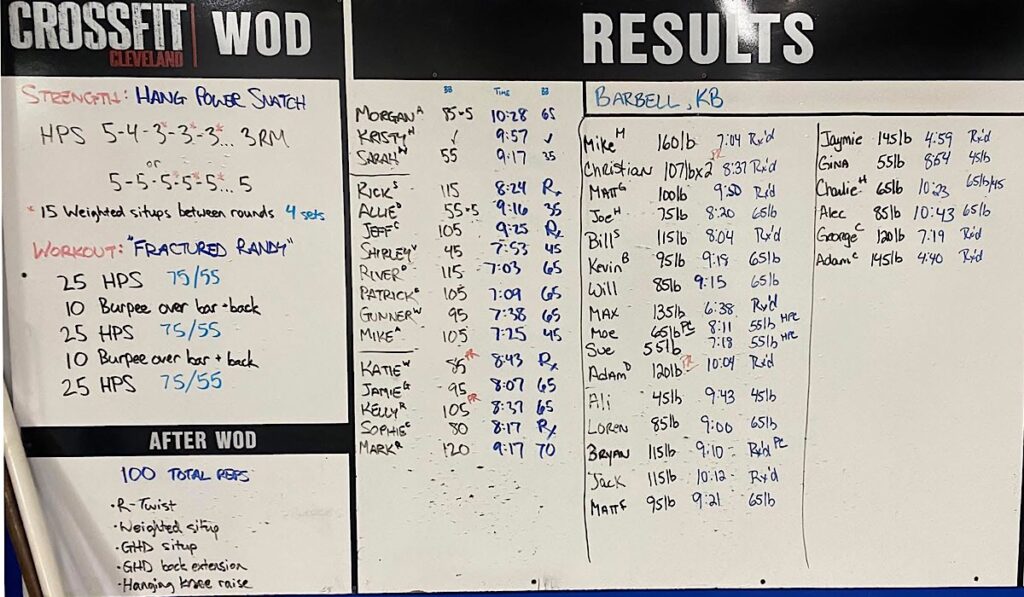 CROSSFIT CLEVELAND WOD
STRENGTH: HANG POWER SNATCH
HPS 5-4-3*-3*-3*... 3RM
or
5-5-5*-5*-5*...5
* 15 Weighted situps between rounds 4 sets
WORKOUT: "FRACTURED RANDY"
25 HPS 75/55
10 Burpee over bar + back
25 HPS 75/55
10 Burpee over bar + back
25 HPS 75/55
AFTER WOD
100 TOTAL REPS
• R-Twist
• Weighted situp
• GHD situp
• GHD back extension
• Hanging knee raise
RESULTS
BB TIME BB
MORGAN A 85.5 10:28 65
KRISTY H ✓ 9:57 ✓
SARAH W 55 9:17 35
RICK S 115 8:24 Rx
ALLIE D 55.5 9:16 35
JEFF C 105 9:25 Rx
SHIRLEY V 95 7:53 45
RIVER D 115 7:03 65
PATRICK 105 7:09 65
GUNNER W 95 7:38 65
MIKE A 105 7:25 45
KATIE W 85 PR 8:43 Rx
JAMIE G 95 8:07 65
KELLY R 105 PR 8:37 65
SOPHIE C 80 8:17 Rx
MARK R 120 9:17 70
BARBELL, KB
Mike M 160lb 7:04 Rx'd
Christian 107lbx2 PR 8:37 Rx'd
MATT G 100lb 9:50 Rx'd
Joe H 75lb 8:20 65lb
Bill S 115lb 8:04 Rx'd
Kevin B 95lb 9:15 65lb
Will 85lb 9:15 65lb
MAX 135lb 6:38 Rx'd
Moe 65lb PC 8:11 55lb HPC
Sue 55lb 7:18 55lb HPC
Adam D 120lb PR 10:04 Rx'd
Ali 45lb 9:43 45lb
LOREN 85lb 9:00 65lb
BRYAN 115lb 9:10 Rx'd PC
Jack 115lb 10:12 Rx'd
MATT F 95lb 9:21 65lb
Jaymie 145lb 4:59 Rx'd
GINA 55lb 8:54 45lb
Charlie H 65lb 10:23 65lb/45
Alec 85lb 10:43 65lb
George C 120lb 7:19 Rx'd
Adam C 145lb 4:40 Rx'd